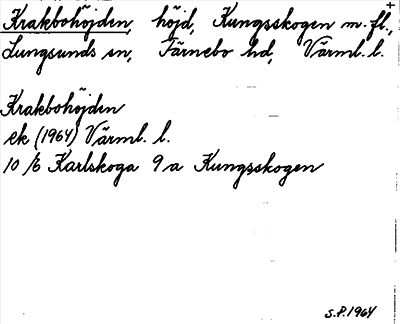 Krakbohöjden, höjd, Kungsskogen m. fl.,
Lungsunds sn, Färnebo hd, Värml. l.
Krakbohöjden
ek (1964) Värml. l.
10 /6 Karlskoga 9 a Kungsskogen
S.P. 1964